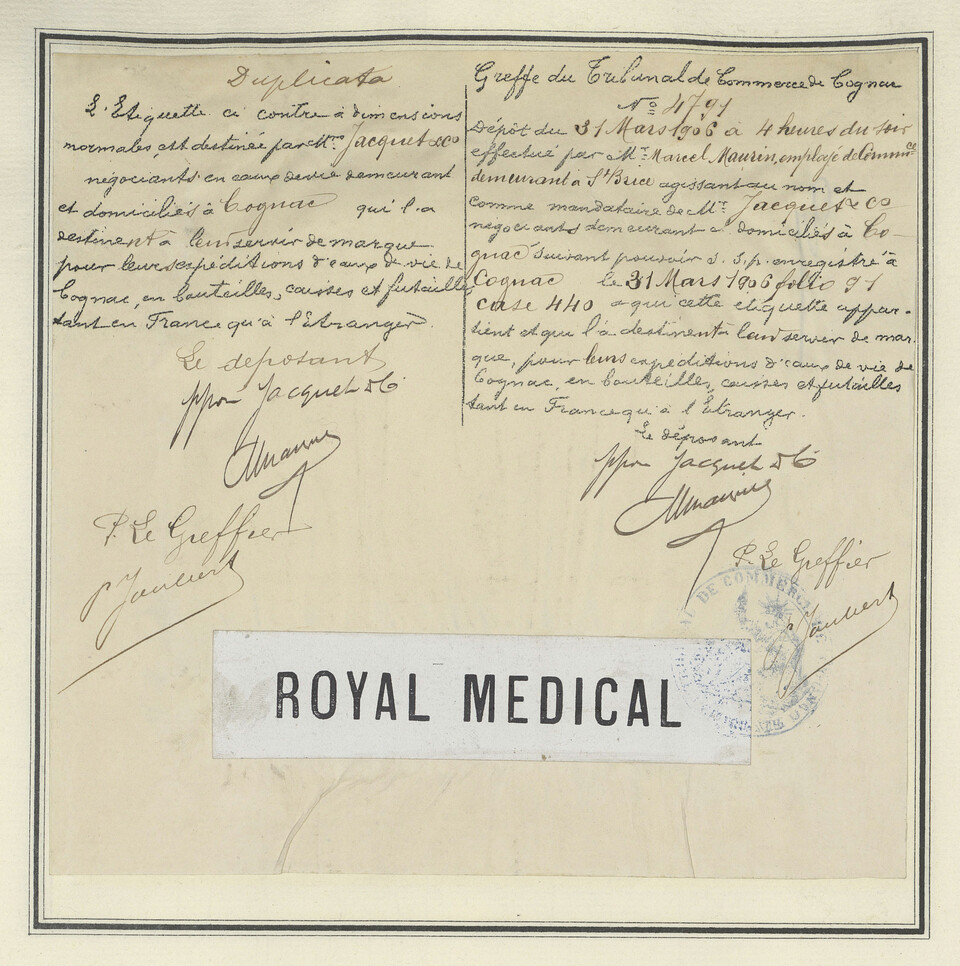 Duplicata
L'Etiquette ci contre à dimensions
normales, est destinée par Mrs Jacquet & Co
négociants en eaux de vie demeurant
et domiciliés à Cognac qui l'a
destinent à leur servir de marque
pour leurs expéditions d'eaux de vie de
Cognac, en bouteilles, caisses et futailles
tant en France qu'à l'Etranger.
Le déposant
ppon Jacquet & Co
Maurin
P. Le Greffier
P Joubert
Greffe du Tribunal de Commerce de Cognac
No 4791
Dépôt du 31 Mars 1906 à 4 heures du soir
effectué par Mr Marcel Maurin, employé de Commce
demeurant à St Brice agissant au nom et
comme mandataire de Mrs Jacquet & Co
négociants demeurant & domiciliés à Co-
gnac suivant pouvoir s. s. p. enregistré à
Cognac le 31 Mars 1906 folio 91
case 440 a qui cette etiquette appar-
tient et qui l'a destinent à leur servir de mar-
que, pour leurs expéditions d'eaux de vie de
Cognac, en bouteilles, caisses et futailles
tant en France qu'à l'Etranger.
Le déposant
ppon Jacquet & Co
Maurin
P. Le Greffier
P Joubert
DE COMMERCE
ROYAL MEDICAL